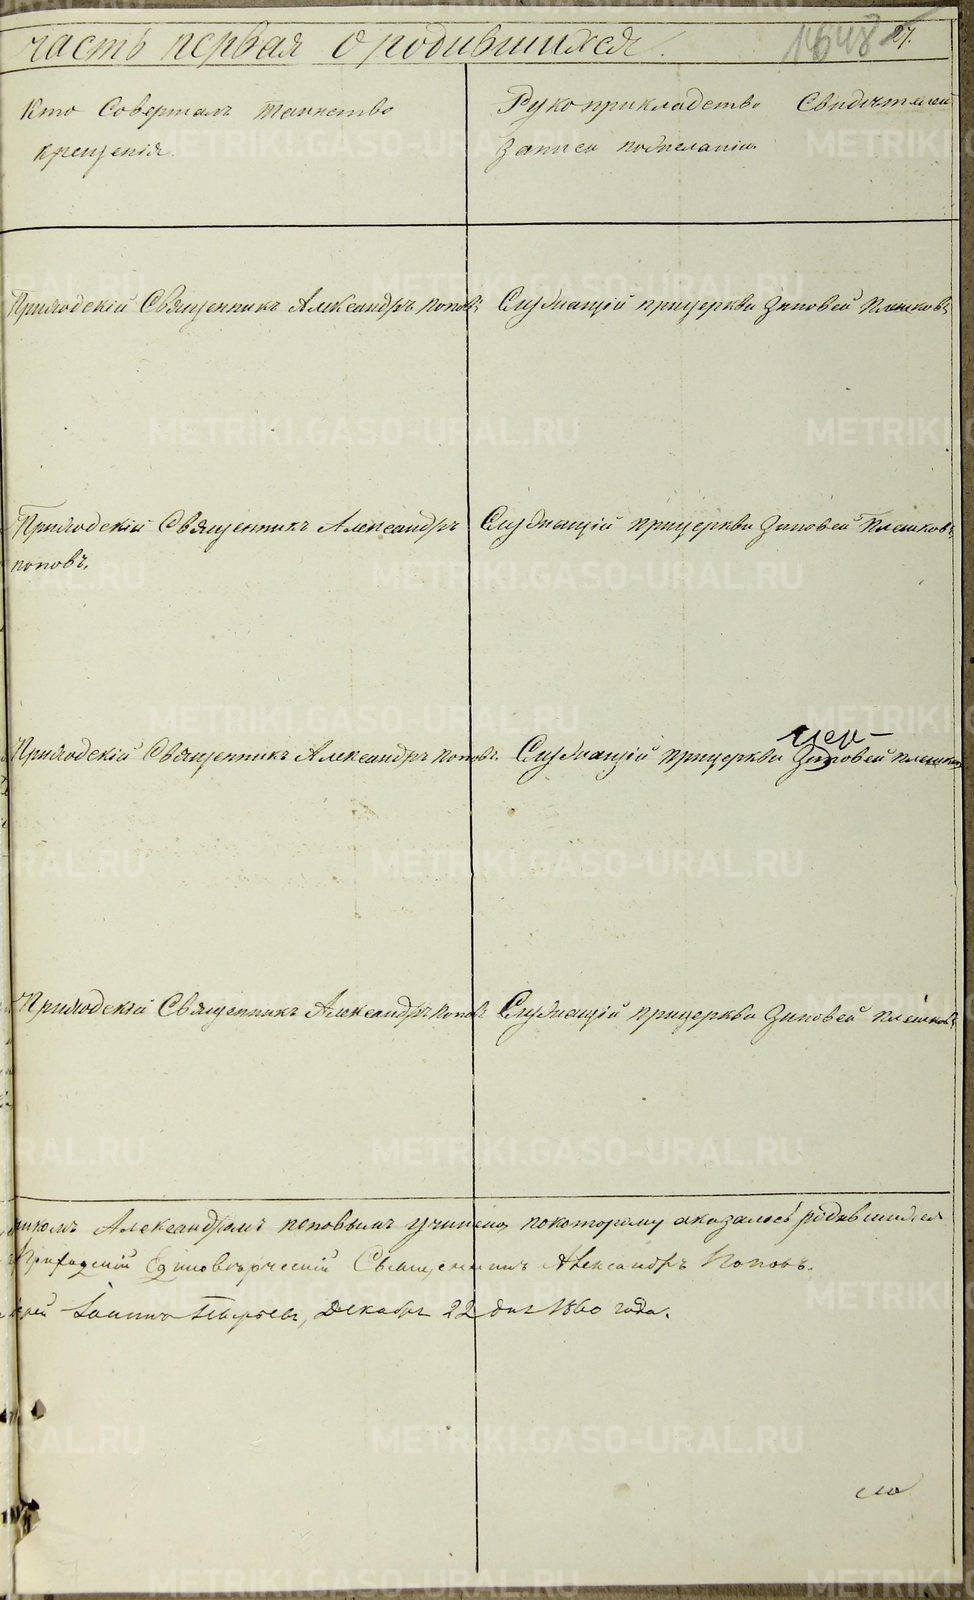 часть первая о родившихся.
1648 27.
Кто Совершалъ таинство
крещенія.
Рукоприкладство Свидѣтелей
Записи пожеланію
Приходскій Священникъ Александръ Поповъ
Служащій прицеркви Зиновей Плешковъ
Приходскій Священникъ Александръ
поповъ.
Служащій прицеркви Зиновей Плешковъ
Приходскій Священникъ Александръ поповъ.
цер-
Служащій прицеркви Зиновей плешковъ
Приходскій Священникъ Александръ поповъ
Служащій прицеркви Зиновей плешковъ
никомъ Александромъ поповымъ учинено, покоторому оказалось родившихся
Приходскій Единовѣрческій Священникъ Александръ Поповъ.
Іоаннъ Декабря 22 дня 1860 года.
METRIKI.GASO-URAL.RU